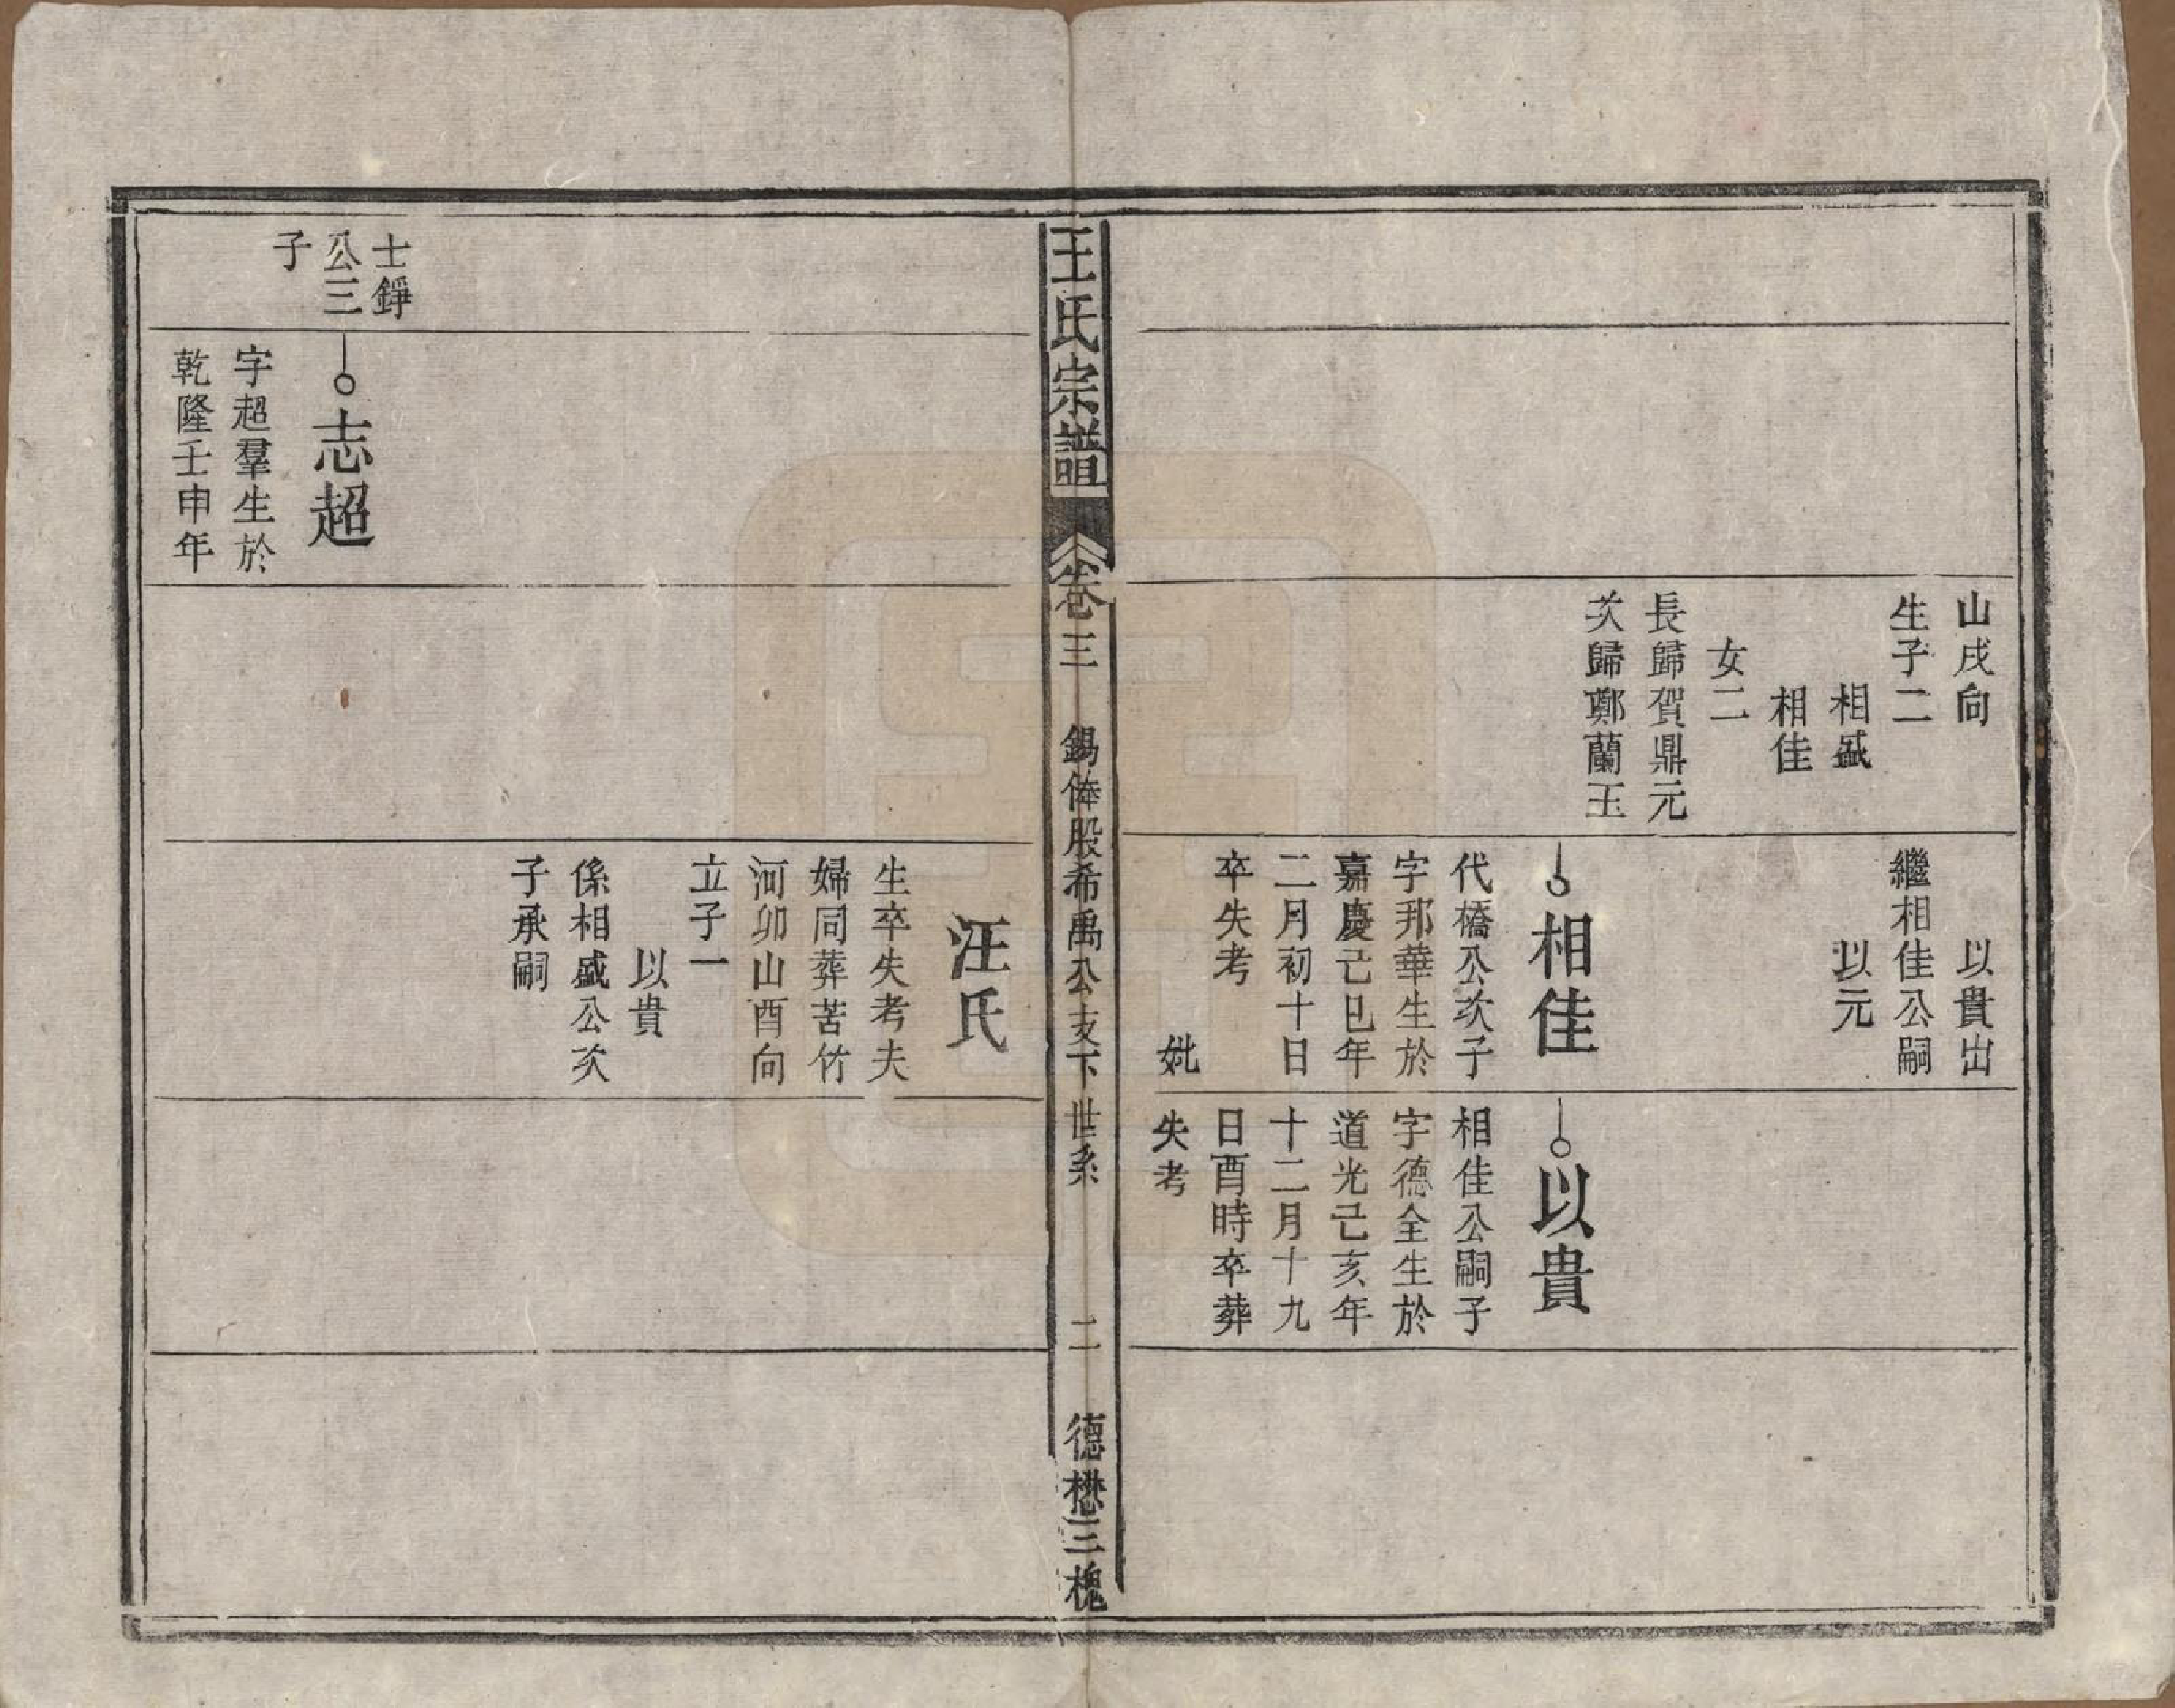 山戌向
生子二
相盛
相佳
女二
長歸賀鼎元
次歸鄭蘭玉
以貴出
繼相佳公嗣
以元
相佳
代橋公次子
字邦華生於
嘉慶己巳年
二月初十日
卒失考
妣
以貴
相佳公嗣子
字德全生於
道光己亥年
十二月十九
日酉時卒葬
失考
王氏宗譜
卷三
錫俸股希禹公支下世系
二
德懋三槐
士錚
公三
子
志超
字超羣生於
乾隆壬申年
汪氏
生卒失考夫
婦同葬苦竹
河卯山酉向
立子一
以貴
係相盛公次
子承嗣